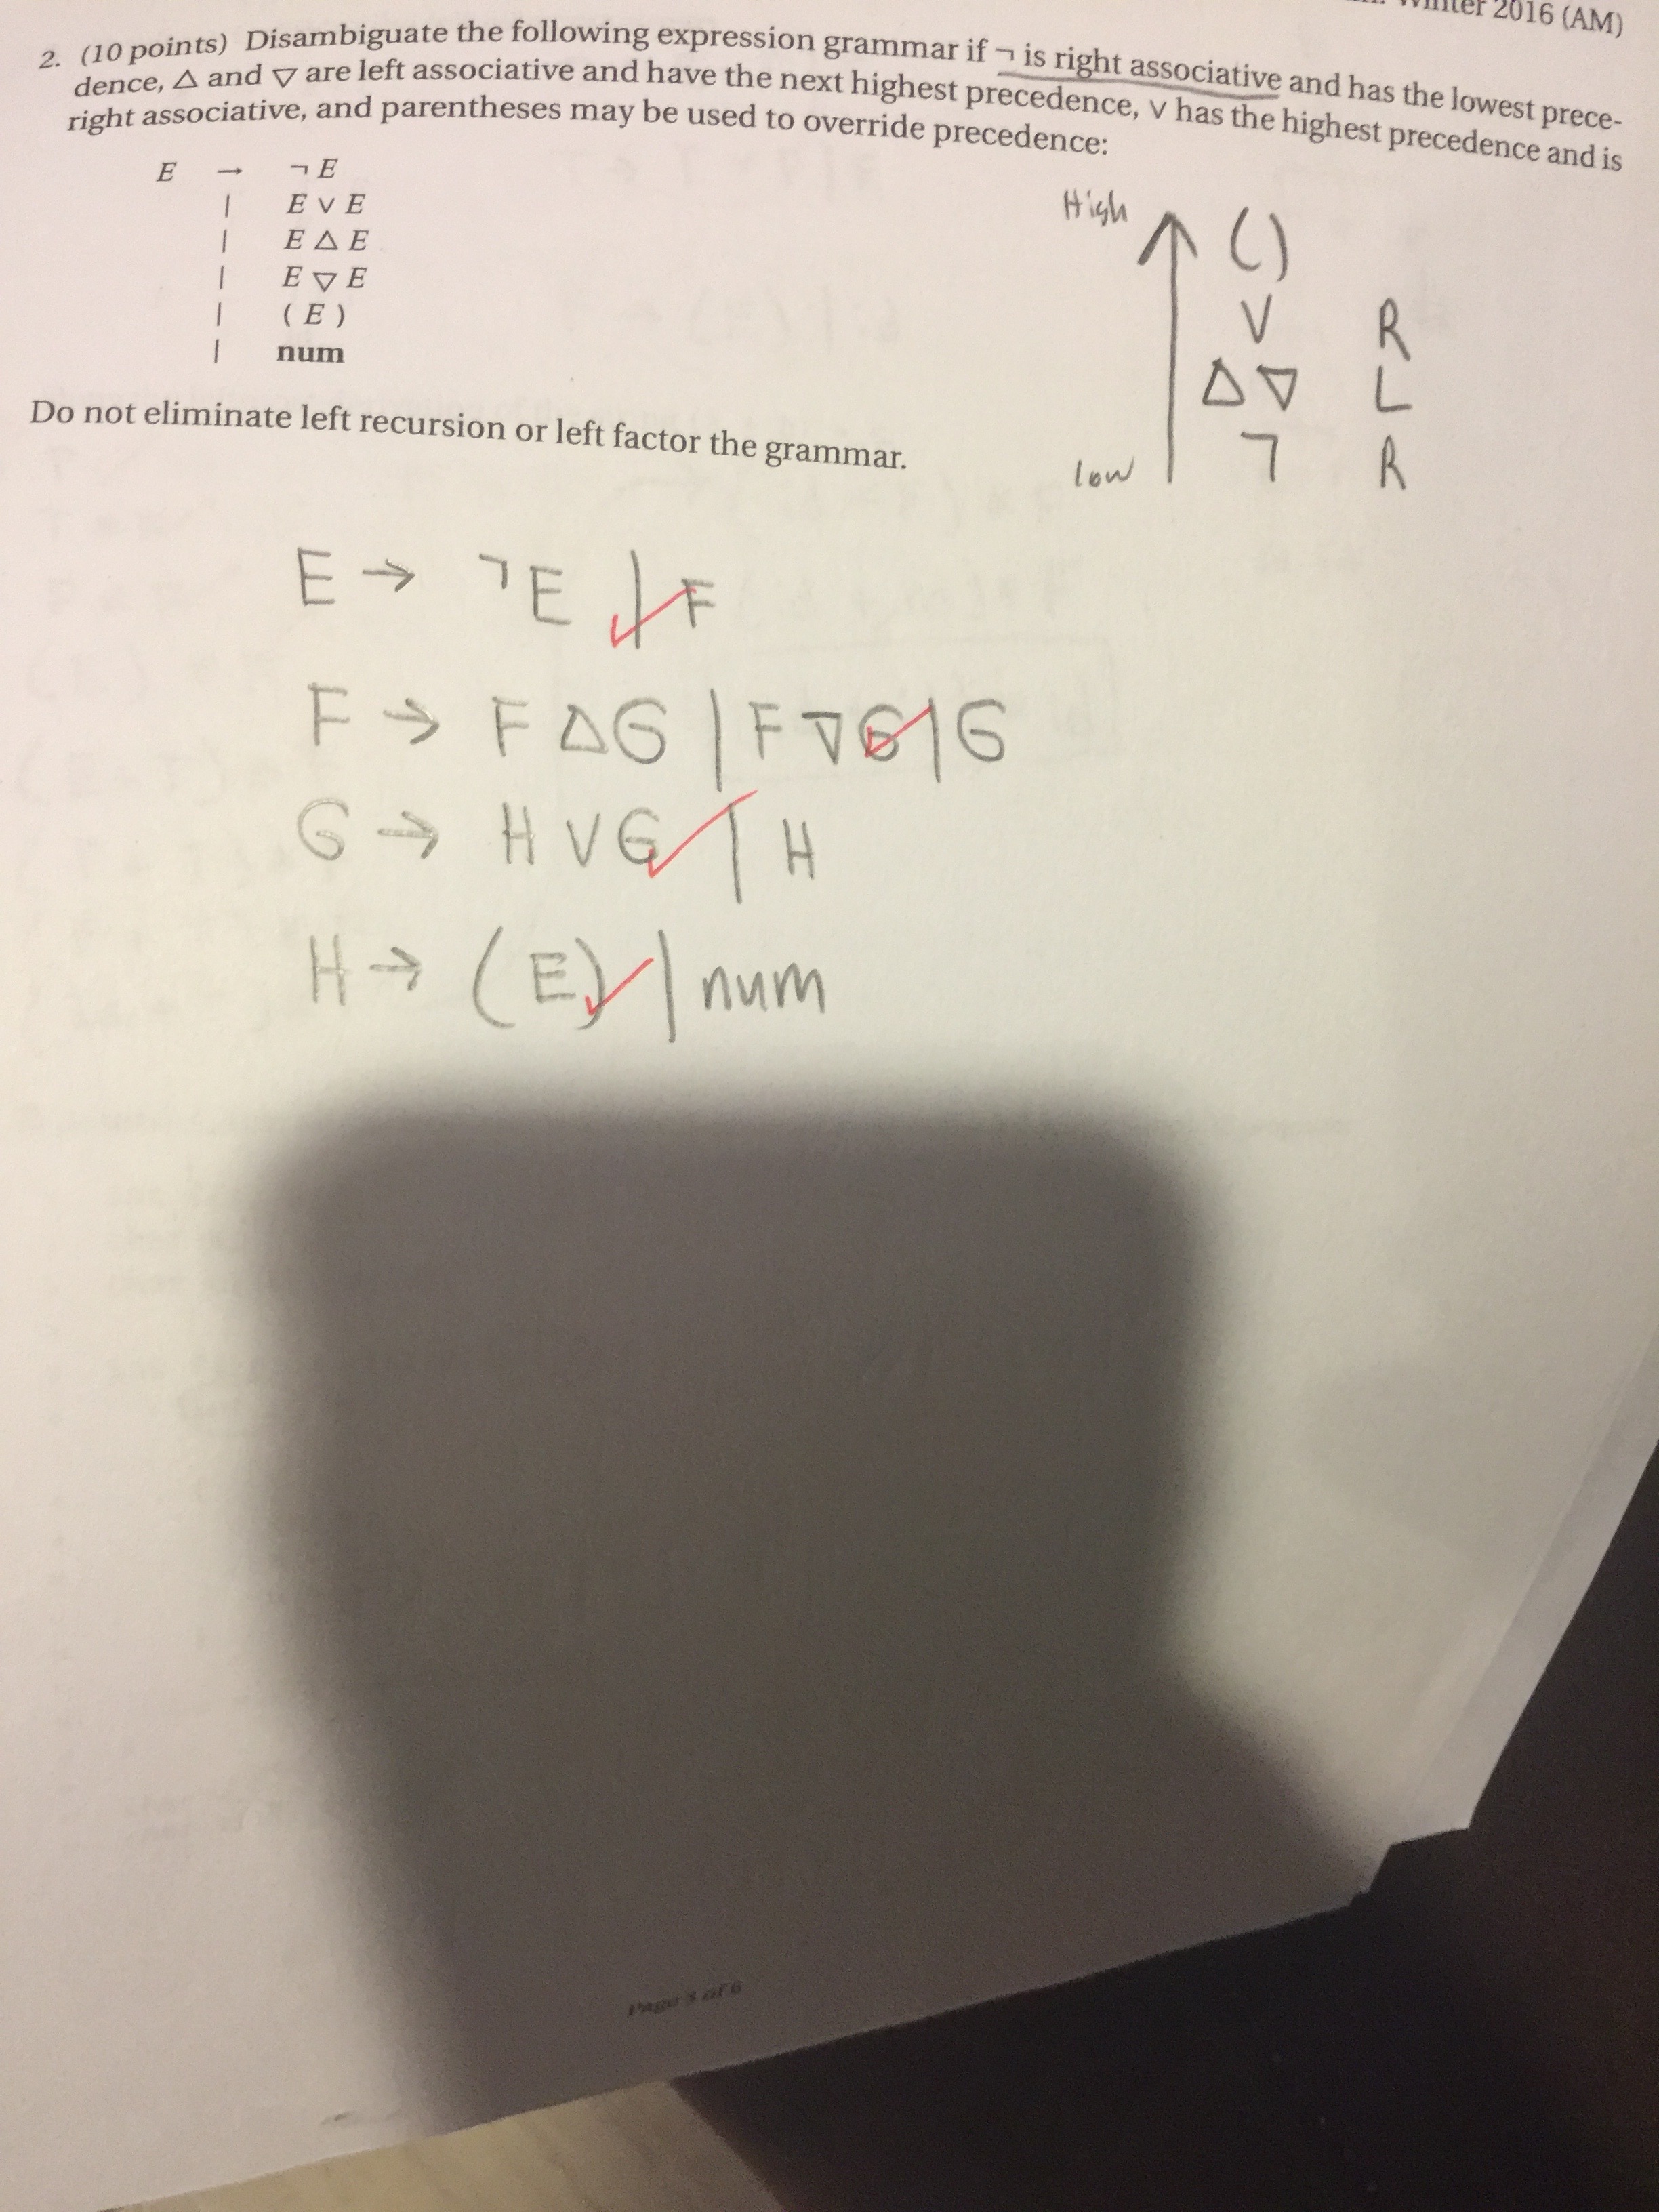 Winter 2016 (AM)
2. (10 points) Disambiguate the following expression grammar if ¬ is right associative and has the lowest prece-
dence, △ and ▽ are left associative and have the next highest precedence, ∨ has the highest precedence and is
right associative, and parentheses may be used to override precedence:
E → ¬ E
| E ∨ E
| E △ E
| E ▽ E
| ( E )
| num
High ()
∨ R
△ ▽ L
low ¬ R
Do not eliminate left recursion or left factor the grammar.
E → ¬E | F
F → F △ G | F ▽ G | G
G → H ∨ G | H
H → (E) | num
Page 3 of 6